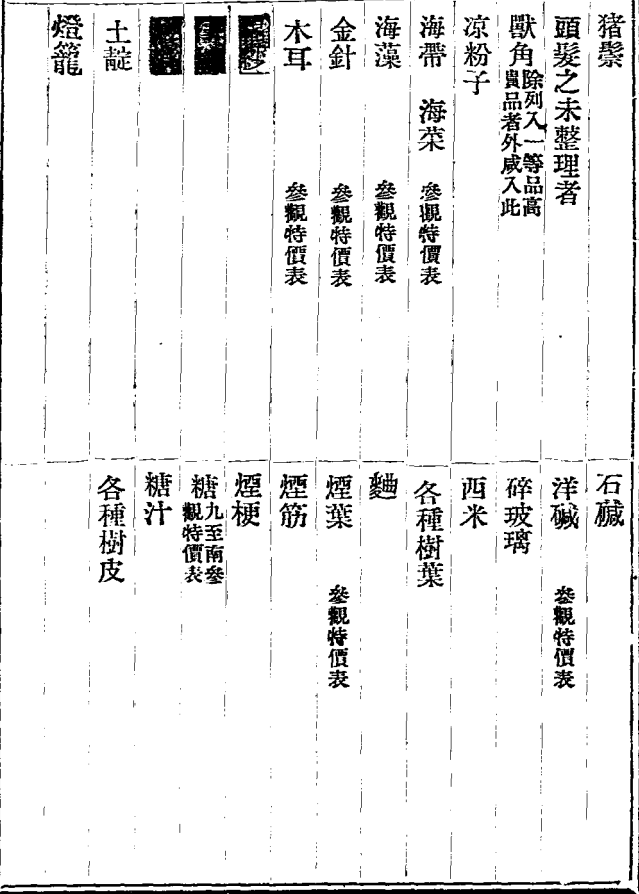 猪鬃
頭髮之未整理者
獸角 除列入一等品高貴品者外咸入此
凉粉子
海帶 海菜 參觀特價表
海藻 參觀特價表
金針 參觀特價表
木耳 參觀特價表
土靛
燈籠
石鹼
洋鹼 參觀特價表
碎玻璃
西米
各種樹葉
麯
煙葉 參觀特價表
煙筋
煙梗
糖 九至南參觀特價表
糖汁
各種樹皮